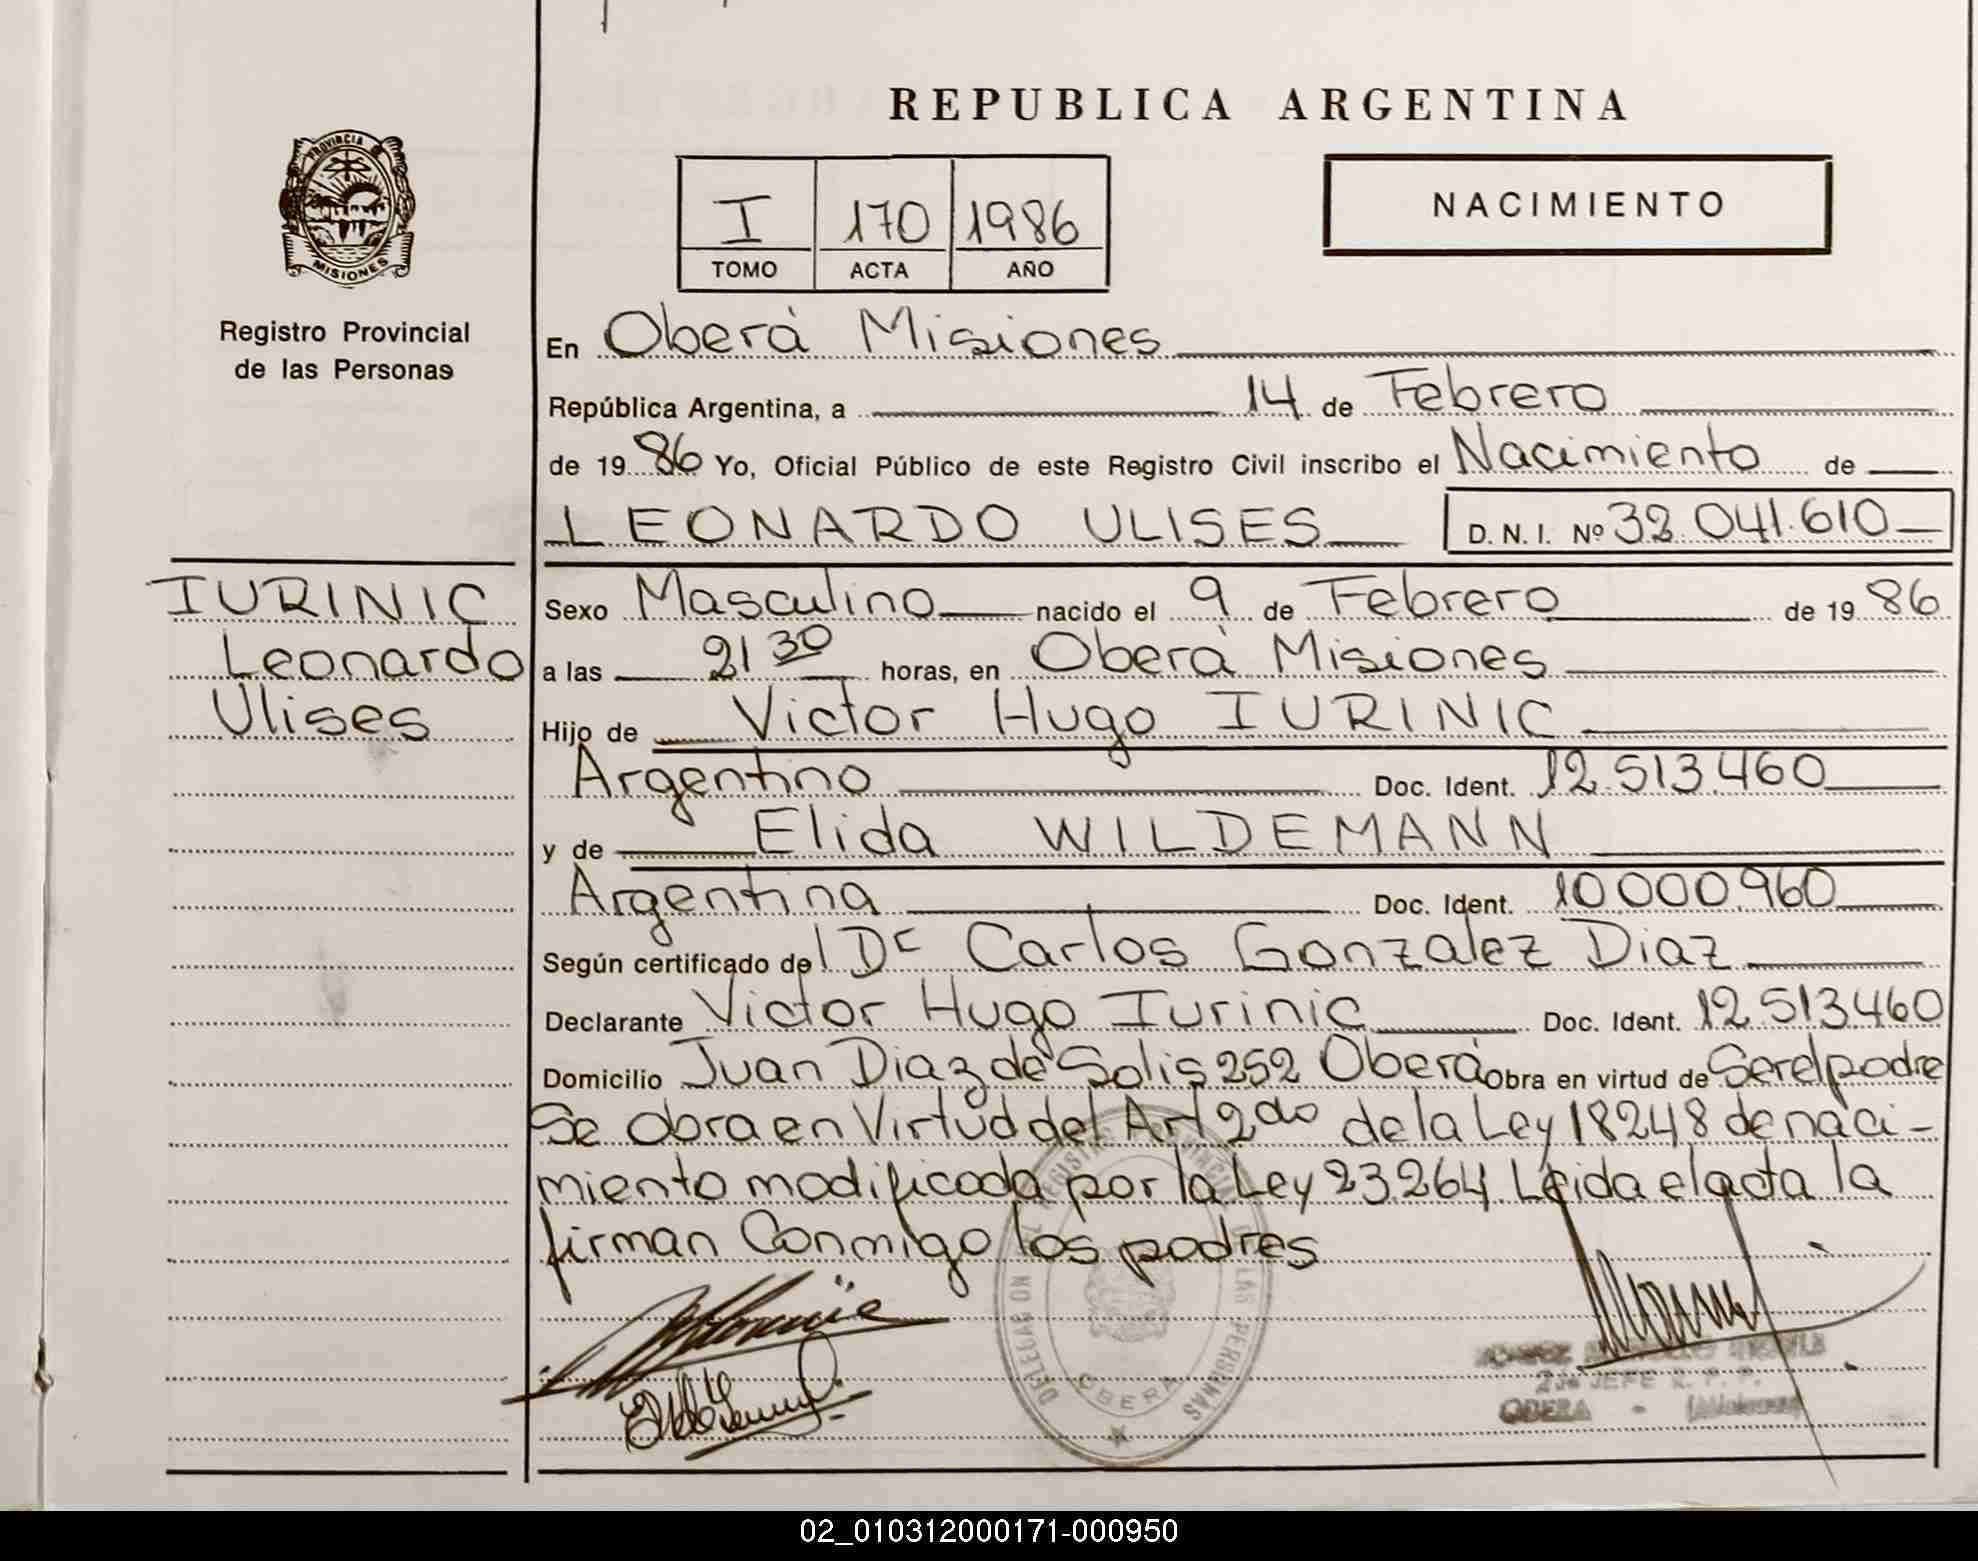 REPUBLICA ARGENTINA
PROVINCIA
MISIONES
Registro Provincial
de las Personas
I 170 1986
TOMO ACTA AÑO
NACIMIENTO
En Oberá Misiones
República Argentina, a 14 de Febrero
de 1986 Yo, Oficial Público de este Registro Civil inscribo el Nacimiento de
LEONARDO ULISES D. N. I. Nº 32.041.610
IURINIC
Leonardo
Ulises
Sexo Masculino nacido el 9 de Febrero de 1986
a las 21 30 horas, en Oberá Misiones
Hijo de Victor Hugo IURINIC
Argentino Doc. Ident. 12.513.460
y de Elida WILDEMANN
Argentina Doc. Ident. 10.000.960
Según certificado del Dr Carlos Gonzalez Diaz
Declarante Victor Hugo Iurinic Doc. Ident. 12.513.460
Domicilio Juan Diaz de Solis 252 Oberá obra en virtud de Ser el padre
Se obra en Virtud del Art 2do de la Ley 18248 de naci-
miento modificada por la Ley 23.264 Leida el acta la
firman Conmigo los padres
DELEGACION DEL REGISTRO PROVINCIAL DE LAS PERSONAS
OBERA
2do JEFE R. P. P.
OBERA - (Misiones)
02_010312000171-000950